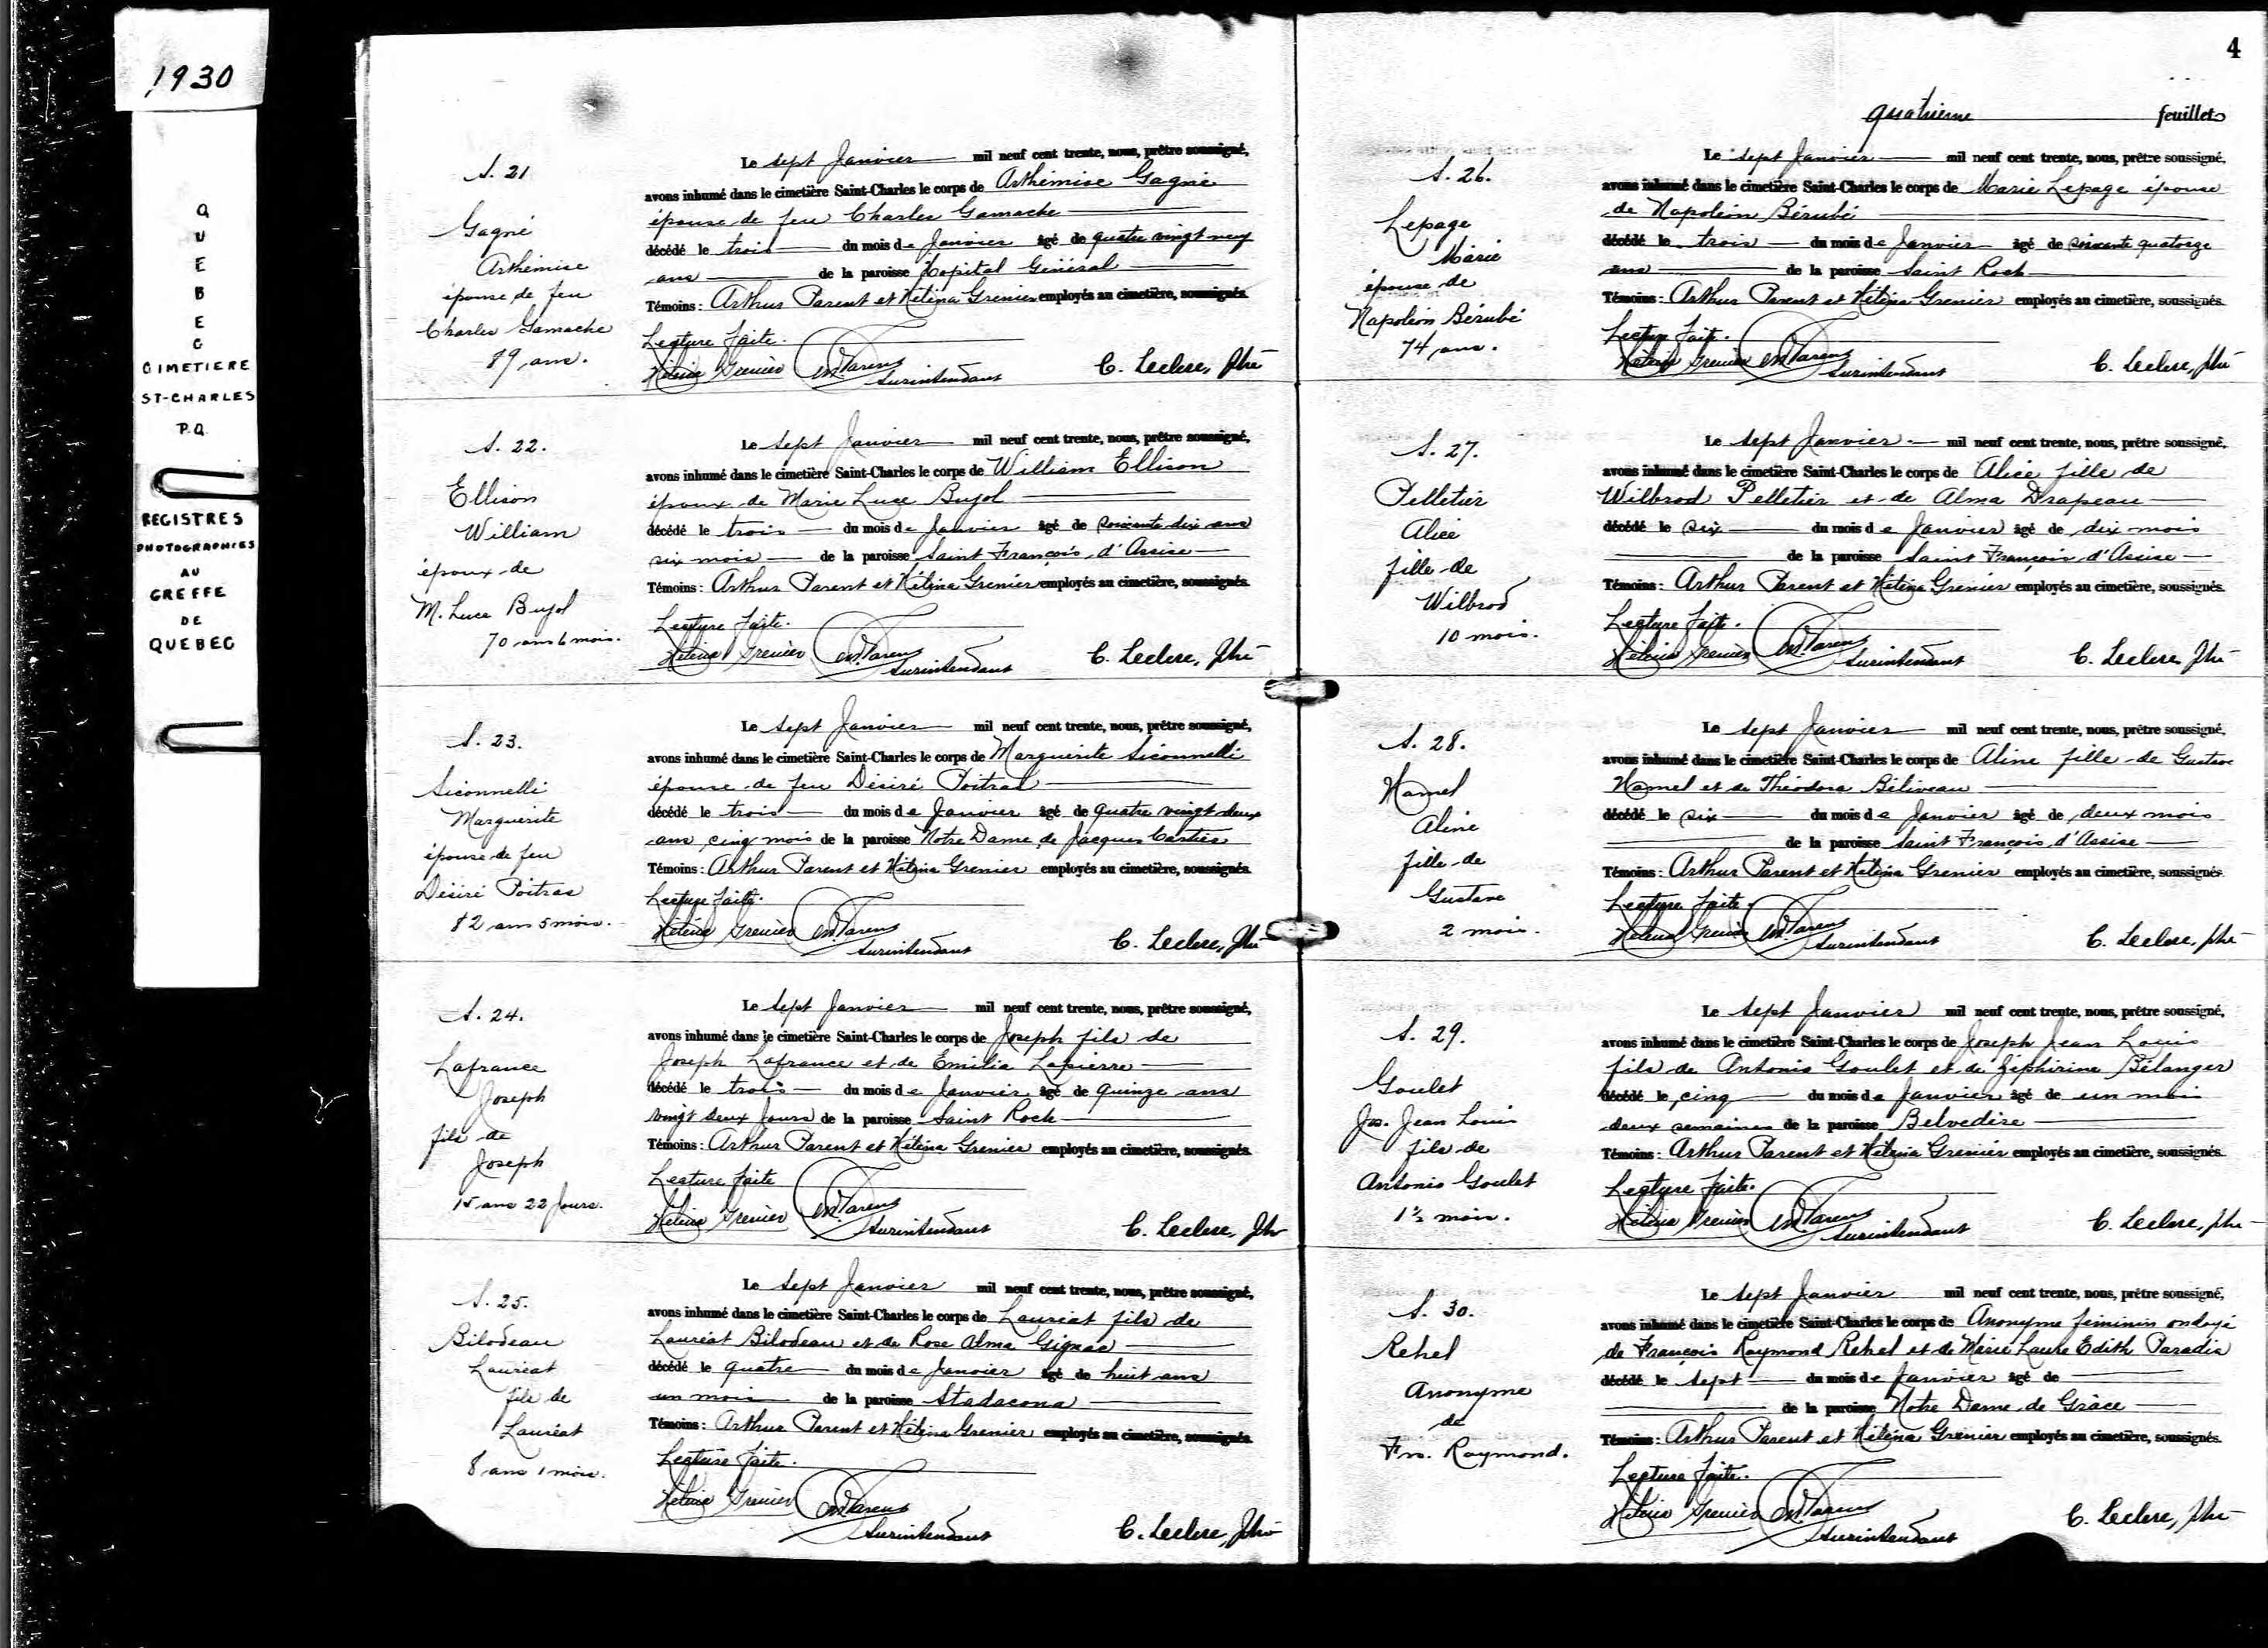 1930
QUEBEC
CIMETIERE
ST-CHARLES
P.Q.
REGISTRES
PHOTOGRAPHIES
AU
GREFFE
DE
QUEBEC
S. 21
Gagné
Arthémise
épouse de feu
Charles Gamache
89 ans.
Le sept Janvier mil neuf cent trente, nous, prêtre soussigné,
avons inhumé dans le cimetière Saint-Charles le corps de Arthémise Gagné
épouse de feu Charles Gamache
décédé le trois du mois de Janvier âgé de quatre vingt neuf
ans de la paroisse Hopital Général
Témoins : Arthur Parent et Héléna Grenier employés au cimetière, soussignés.
Lecture faite.
Héléna Grenier Parent
Surintendant
C. Leclerc, Ptre
S. 22.
Ellison
William
époux de
M. Luce Bujol
70 ans 6 mois.
Le sept Janvier mil neuf cent trente, nous, prêtre soussigné,
avons inhumé dans le cimetière Saint-Charles le corps de William Ellison
époux de Marie Luce Bujol
décédé le trois du mois de Janvier âgé de soixante dix ans
six mois de la paroisse Saint François d'Assise
Témoins : Arthur Parent et Héléna Grenier employés au cimetière, soussignés.
Lecture faite.
Héléna Grenier Parent
Surintendant
C. Leclerc, Ptre
S. 23.
Siconnelli
Marguerite
épouse de feu
Désiré Poitras
82 ans 5 mois.
Le sept Janvier mil neuf cent trente, nous, prêtre soussigné,
avons inhumé dans le cimetière Saint-Charles le corps de Marguerite Siconnelli
épouse de feu Désiré Poitras
décédé le trois du mois de Janvier âgé de quatre vingt deux
ans cinq mois de la paroisse Notre Dame de Jacques Cartier
Témoins : Arthur Parent et Héléna Grenier employés au cimetière, soussignés.
Lecture faite.
Héléna Grenier Parent
Surintendant
C. Leclerc, Ptre
S. 24.
Lafrance
Joseph
fils de
Joseph
15 ans 22 Jours.
Le sept Janvier mil neuf cent trente, nous, prêtre soussigné,
avons inhumé dans le cimetière Saint-Charles le corps de Joseph fils de
Joseph Lafrance et de Emilia Lapierre
décédé le trois du mois de Janvier âgé de quinze ans
vingt deux Jours de la paroisse Saint Roch
Témoins : Arthur Parent et Héléna Grenier employés au cimetière, soussignés.
Lecture faite
Héléna Grenier Parent
Surintendant
C. Leclerc, Ptre
S. 25.
Bilodeau
Lauréat
fils de
Lauréat
8 ans 1 mois.
Le sept Janvier mil neuf cent trente, nous, prêtre soussigné,
avons inhumé dans le cimetière Saint-Charles le corps de Lauréat fils de
Lauréat Bilodeau et de Rose Alma Gignac
décédé le quatre du mois de Janvier âgé de huit ans
un mois de la paroisse Stadacona
Témoins : Arthur Parent et Héléna Grenier employés au cimetière, soussignés.
Lecture faite.
Héléna Grenier Parent
Surintendant
C. Leclerc, Ptre
4
quatrième feuillet
S. 26.
Lepage
Marie
épouse de
Napoléon Bérubé
74 ans.
Le sept Janvier mil neuf cent trente, nous, prêtre soussigné,
avons inhumé dans le cimetière Saint-Charles le corps de Marie Lepage épouse
de Napoléon Bérubé
décédé le trois du mois de Janvier âgé de soixante quatorze
ans de la paroisse Saint Roch
Témoins : Arthur Parent et Héléna Grenier employés au cimetière, soussignés.
Lecture faite.
Héléna Grenier Parent
Surintendant
C. Leclerc, Ptre
S. 27.
Pelletier
Alice
fille de
Wilbrod
10 mois.
Le sept Janvier mil neuf cent trente, nous, prêtre soussigné,
avons inhumé dans le cimetière Saint-Charles le corps de Alice fille de
Wilbrod Pelletier et de Alma Drapeau
décédé le six du mois de Janvier âgé de dix mois
de la paroisse Saint François d'Assise
Témoins : Arthur Parent et Héléna Grenier employés au cimetière, soussignés.
Lecture faite.
Héléna Grenier Parent
Surintendant
C. Leclerc, Ptre
S. 28.
Hamel
Aline
fille de
Gustave
2 mois.
Le sept Janvier mil neuf cent trente, nous, prêtre soussigné,
avons inhumé dans le cimetière Saint-Charles le corps de Aline fille de Gustave
Hamel et de Théodora Béliveau
décédé le six du mois de Janvier âgé de deux mois
de la paroisse Saint François d'Assise
Témoins : Arthur Parent et Héléna Grenier employés au cimetière, soussignés.
Lecture faite.
Héléna Grenier Parent
Surintendant
C. Leclerc, ptre
S. 29.
Goulet
Jos. Jean Louis
fils de
Antonio Goulet
1 ½ mois.
Le sept Janvier mil neuf cent trente, nous, prêtre soussigné,
avons inhumé dans le cimetière Saint-Charles le corps de Joseph Jean Louis
fils de Antonio Goulet et de Zéphirine Bélanger
décédé le cinq du mois de Janvier âgé de un mois
deux semaines de la paroisse Belvedère
Témoins : Arthur Parent et Héléna Grenier employés au cimetière, soussignés.
Lecture faite.
Héléna Grenier Parent
Surintendant
C. Leclerc, ptre
S. 30.
Rehel
Anonyme
de
Frs. Raymond.
Le sept Janvier mil neuf cent trente, nous, prêtre soussigné,
avons inhumé dans le cimetière Saint-Charles le corps de Anonyme féminin ondoyé
de François Raymond Rehel et de Marie Laure Edith Paradis
décédé le sept du mois de Janvier âgé de
de la paroisse Notre Dame de Grâce
Témoins : Arthur Parent et Héléna Grenier employés au cimetière, soussignés.
Lecture faite.
Héléna Grenier Parent
Surintendant
C. Leclerc, Ptre